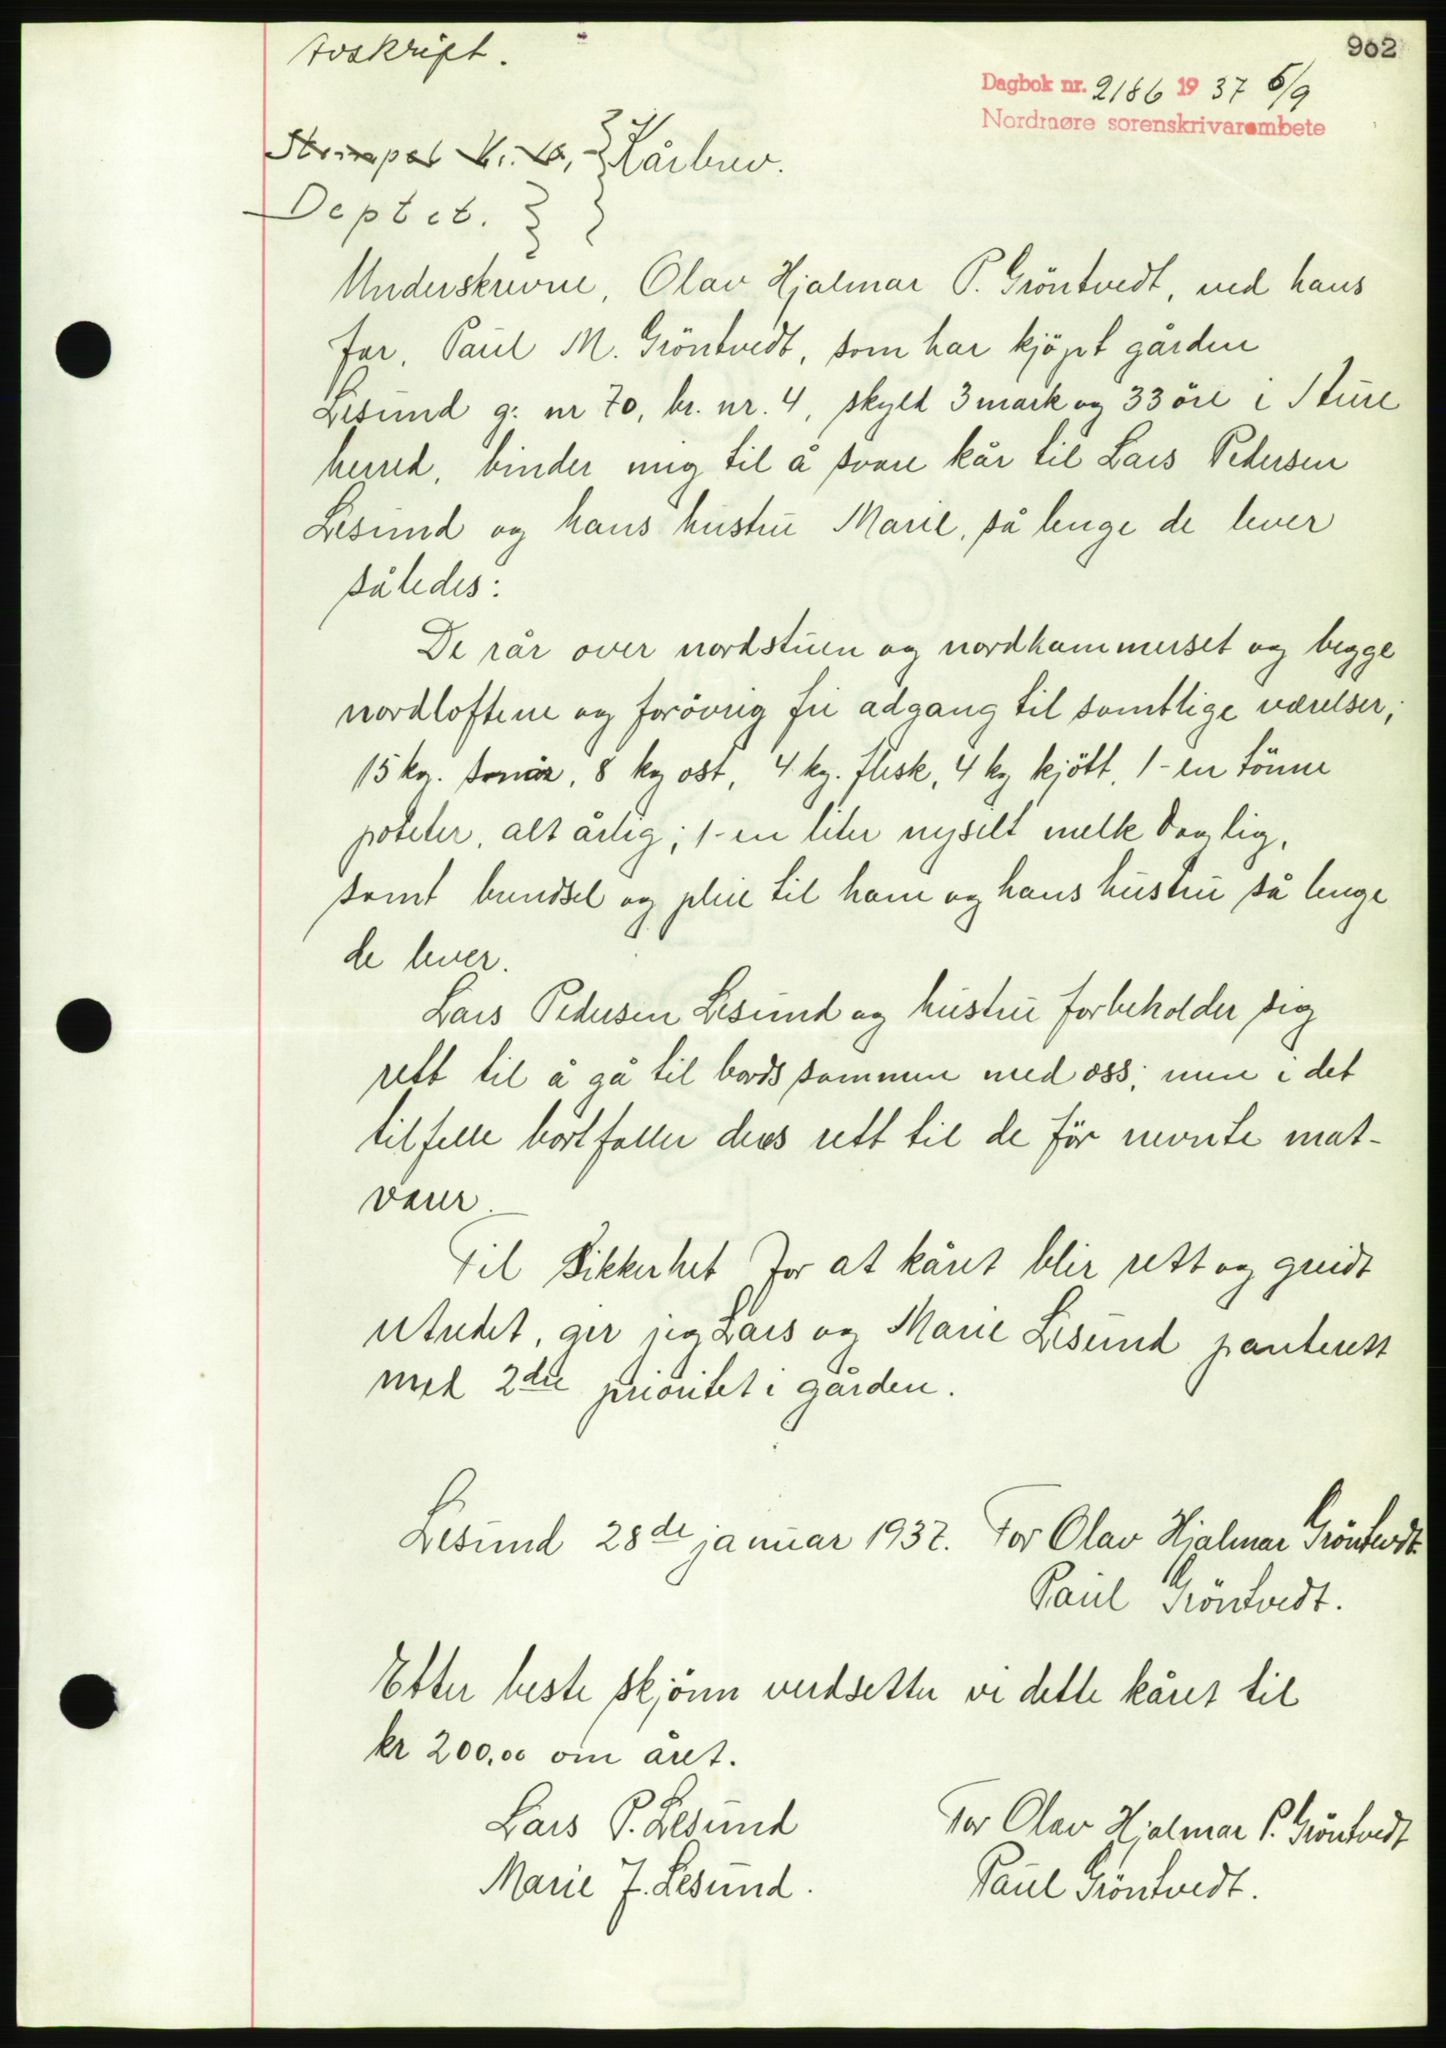 Avskrift.
902
Dagbok nr. 2186 19 37 6/9
Nordmøre sorenskrivarembete
Stempel Kr. } Kårbrev.
Deptet. }
Underskrevne, Olav Hjalmar P. Gröntvedt, ved hans
far, Paul M. Gröntvedt, som har kjöpt gården
Lesund g: nr 70, br. nr. 4, skyld 3 mark og 33 öre i Sture
herred, binder mig til å svare kår til Lars Pedersen
Lesund og hans hustru Marie, så lenge de lever
således:
De rår over nordstuen og nordkammerset og begge
nordloftene og forövrig fri adgang til samtlige værelser;
15 kg. smör, 8 kg ost, 4 kg. flesk, 4 kg kjött, 1-en tönne
poteter, alt årlig; 1-en liter nysilt melk daglig,
samt brendsel og pleie til ham og hans hustru så lenge
de lever.
Lars Pedersen Lesund og hustru forbeholder sig
rett til å gå til bords sammen med oss; men i det
tilfelle bortfaller deres rett til de för nevnte mat-
varer.
Til Sikkerhet for at kåret blir rett og greidt
utredet, gir jeg Lars og Marie Lesund panterett
med 2dre prioritet i gården.
Lesund 28de januar 1937. For Olav Hjalmar Gröntvedt.
Paul Gröntvedt.
Etter beste skjönn verdsetter vi dette kåret til
kr 200,00 om året.
Lars P. Lesund
For Olav Hjalmar P. Gröntvedt
Marie J. Lesund.
Paul Gröntvedt.